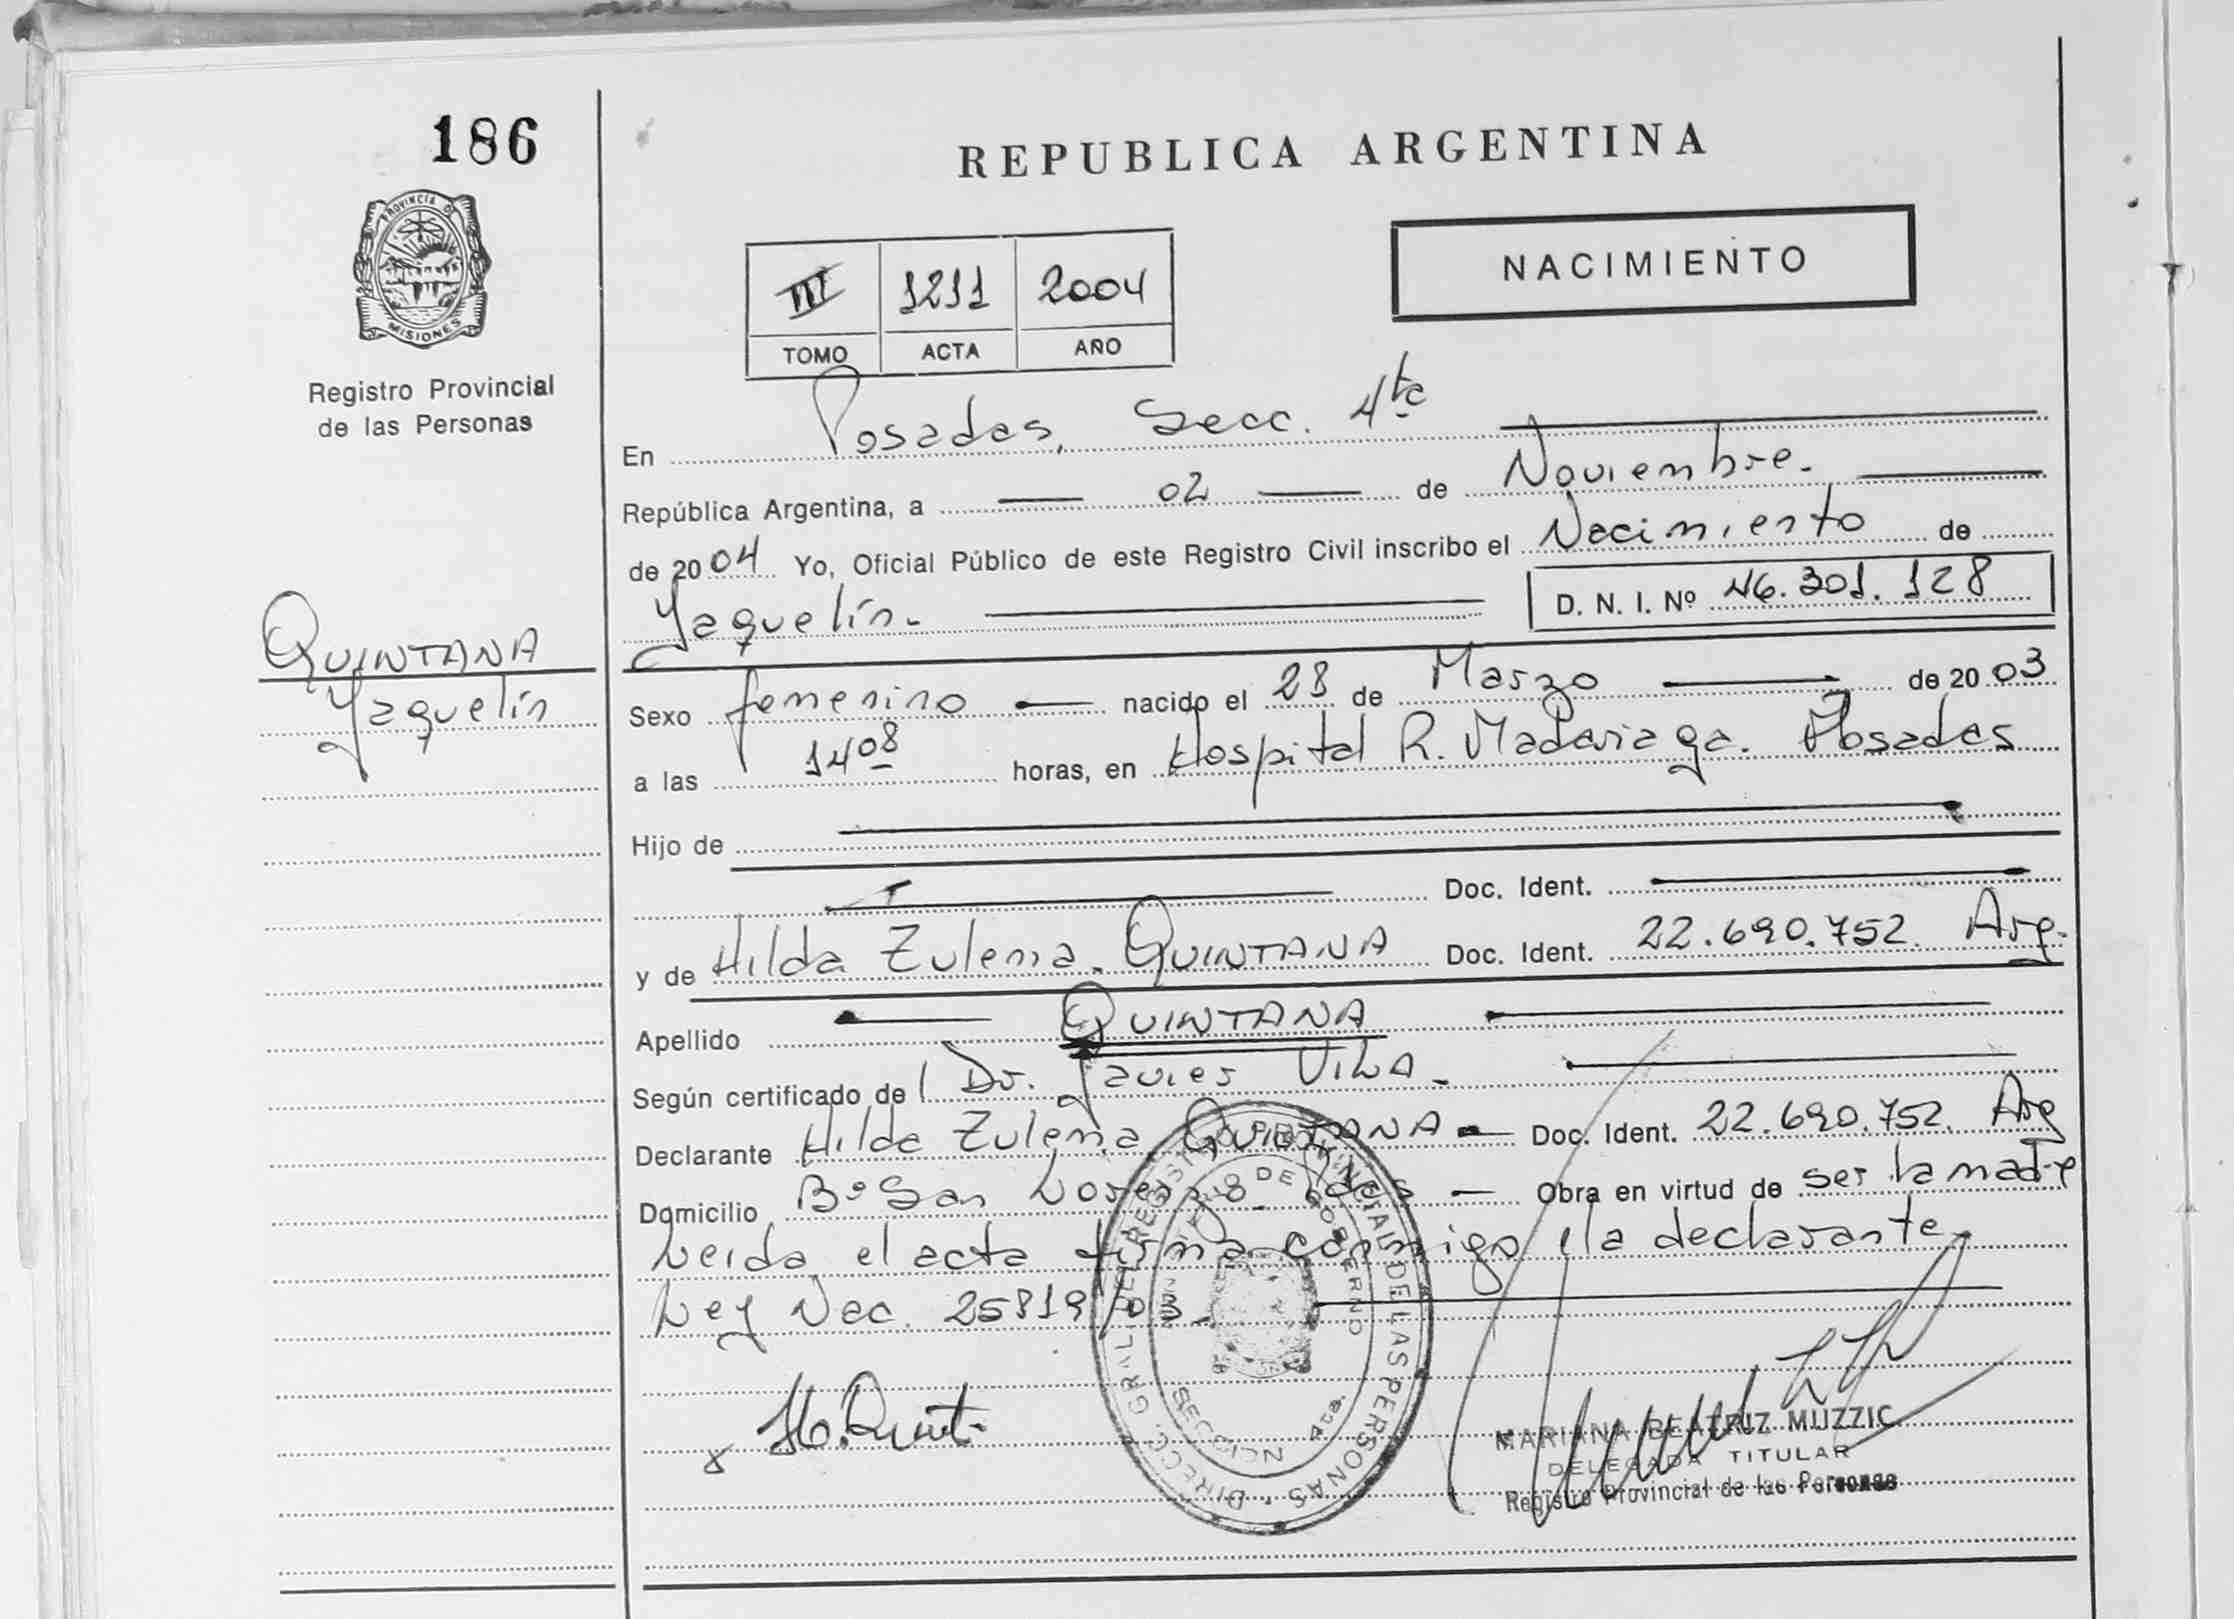 186
REPUBLICA ARGENTINA
PROVINCIA DE
MISIONES
Registro Provincial
de las Personas
NACIMIENTO
III 1211 2004
TOMO ACTA AÑO
En Posadas, Secc. 4ta
República Argentina, a 02 de Noviembre.
de 2004 Yo, Oficial Público de este Registro Civil inscribo el Nacimiento de
Yaquelín. D. N. I. Nº 46.301.128
QUINTANA
Yaquelín
Sexo femenino nacido el 28 de Marzo de 2003
a las 14 08 horas, en Hospital R. Madariaga. Posadas
Hijo de
Doc. Ident.
y de Hilda Zulema. QUINTANA Doc. Ident. 22.690.752. Arg.
Apellido QUINTANA
Según certificado de Dr. Javier VILA.
Declarante Hilda Zulema QUINTANA Doc. Ident. 22.690.752. Arg
Domicilio Bº San Lorenzo. Pdas Obra en virtud de ser la madre
Leida el acta firma conmigo la declarante.
Ley Nac. 25819/03.
DIRECC. GRAL. DEL REGISTRO PROVINCIAL DE LAS PERSONAS
MINISTERIO DE GOBIERNO
SECCION 4ta.
H. Quint.
MARIANA BEATRIZ MUZZIC
DELEGADA TITULAR
Registro Provincial de las Personas